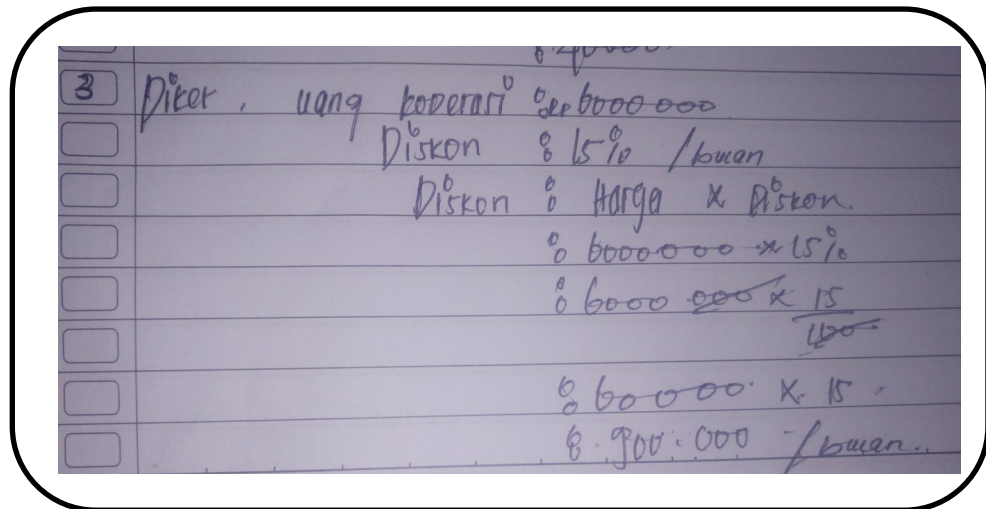 : 40000.
3 Diket. uang koperasi : Rp 6000 000
Diskon : 15% /bulan
Diskon : Harga x Diskon.
: 6000 000 x 15%
: 6000 000 x 15
100
: 60 000 x 15
: 900.000 /bulan.